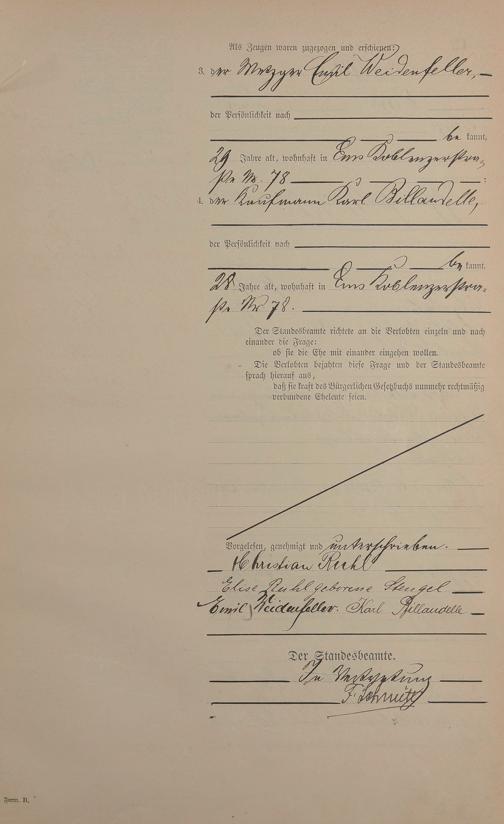 Als Zeugen waren zugezogen und erschienen:
3. der Metzger Emil Weidenfeller, —
der Persönlichkeit nach
be kannt,
29 Jahre alt, wohnhaft in Ems Koblenzerstra-
ße Nr. 78
4. der Kaufmann Karl Billaudelle,
der Persönlichkeit nach
be kannt,
28 Jahre alt, wohnhaft in Ems Koblenzerstra-
ße Nr 78.
Der Standesbeamte richtete an die Verlobten einzeln und nach
einander die Frage:
ob sie die Ehe mit einander eingehen wollen.
Die Verlobten bejahten diese Frage und der Standesbeamte
sprach hierauf aus,
daß sie kraft des Bürgerlichen Gesetzbuchs nunmehr rechtmäßig
verbundene Eheleute seien.
Vorgelesen, genehmigt und unterschrieben.
Christian Ruhl
Elise Ruhl geborene Stengel
Emil Weidenfeller. Karl Billaudelle
Der Standesbeamte.
In Vertretung
F. Schmitz
Form. B.